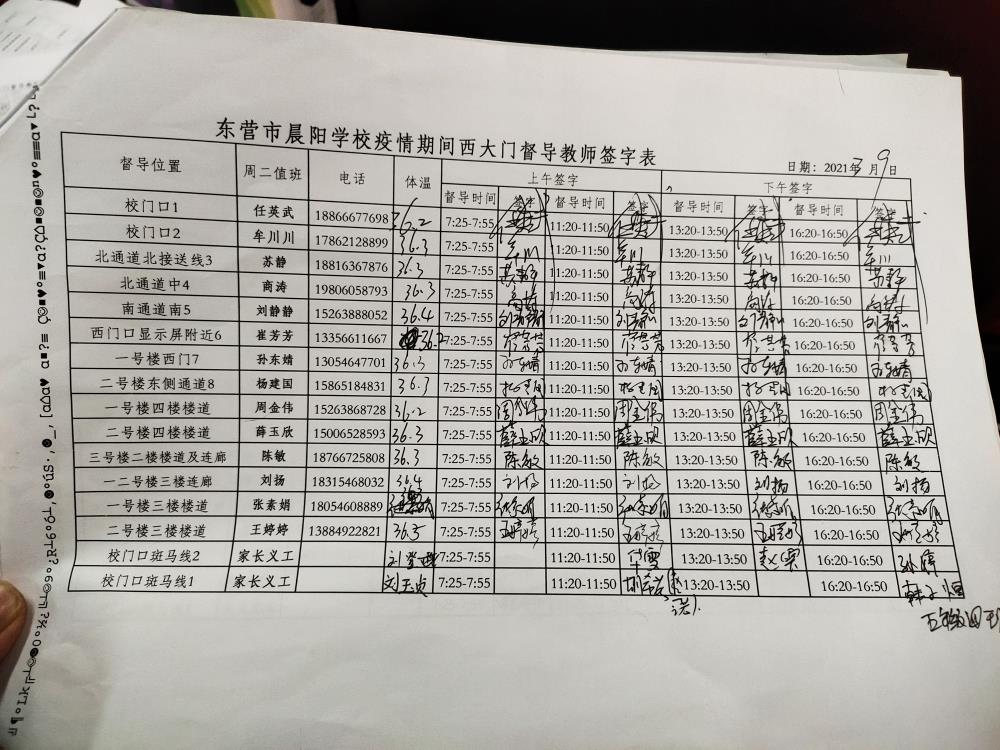 东营市晨阳学校疫情期间西大门督导教师签字表
日期：2021年3月9日
督导位置 周二值班 电话 体温 上午签字 下午签字
督导时间 签字 督导时间 签字 督导时间 签字
校门口1 任英武 18866677698 36.2 7:25-7:55 任英武 11:20-11:50 任英武 13:20-13:50 任英武 16:20-16:50 任英武
校门口2 牟川川 17862128899 36.3 7:25-7:55 牟川 11:20-11:50 牟川 13:20-13:50 牟川 16:20-16:50 牟川
北通道北接送线3 苏静 18816367876 36.3 7:25-7:55 苏静 11:20-11:50 苏静 13:20-13:50 苏静 16:20-16:50 苏静
北通道中4 商涛 19806058793 36.3 7:25-7:55 商涛 11:20-11:50 商涛 13:20-13:50 商涛 16:20-16:50 商涛
南通道南5 刘静静 15263888052 36.4 7:25-7:55 刘静静 11:20-11:50 刘静静 13:20-13:50 刘静静 16:20-16:50 刘静静
西门口显示屏附近6 崔芳芳 13356611667 36.2 7:25-7:55 崔芳芳 11:20-11:50 崔芳芳 13:20-13:50 崔芳芳 16:20-16:50 崔芳芳
一号楼西门7 孙东婧 13054647701 36.3 7:25-7:55 孙东婧 11:20-11:50 孙东婧 13:20-13:50 孙东婧 16:20-16:50 孙东婧
二号楼东侧通道8 杨建国 15865184831 36.3 7:25-7:55 杨建国 11:20-11:50 杨建国 13:20-13:50 杨建国 16:20-16:50 杨建国
一号楼四楼楼道 周金伟 15263868728 36.2 7:25-7:55 周金伟 11:20-11:50 周金伟 13:20-13:50 周金伟 16:20-16:50 周金伟
二号楼四楼楼道 薛玉欣 15006528593 36.3 7:25-7:55 薛玉欣 11:20-11:50 薛玉欣 13:20-13:50 薛玉欣 16:20-16:50 薛玉欣
三号楼二楼楼道及连廊 陈敏 18766725808 36.3 7:25-7:55 陈敏 11:20-11:50 陈敏 13:20-13:50 陈敏 16:20-16:50 陈敏
一二号楼三楼连廊 刘扬 18315468032 36.4 7:25-7:55 刘扬 11:20-11:50 刘扬 13:20-13:50 刘扬 16:20-16:50 刘扬
一号楼三楼楼道 张素娟 18054608889 7:25-7:55 张素娟 11:20-11:50 张素娟 13:20-13:50 张素娟 16:20-16:50 张素娟
二号楼三楼楼道 王婷婷 13884922821 36.5 7:25-7:55 王婷婷 11:20-11:50 王婷婷 13:20-13:50 王婷婷 16:20-16:50 王婷婷
校门口斑马线2 家长义工 7:25-7:55 11:20-11:50 毕雪 13:20-13:50 赵霞 16:20-16:50 孙婷
校门口斑马线1 家长义工 刘玉贞 7:25-7:55 11:20-11:50 13:20-13:50 16:20-16:50 韩子恒
五年级四班